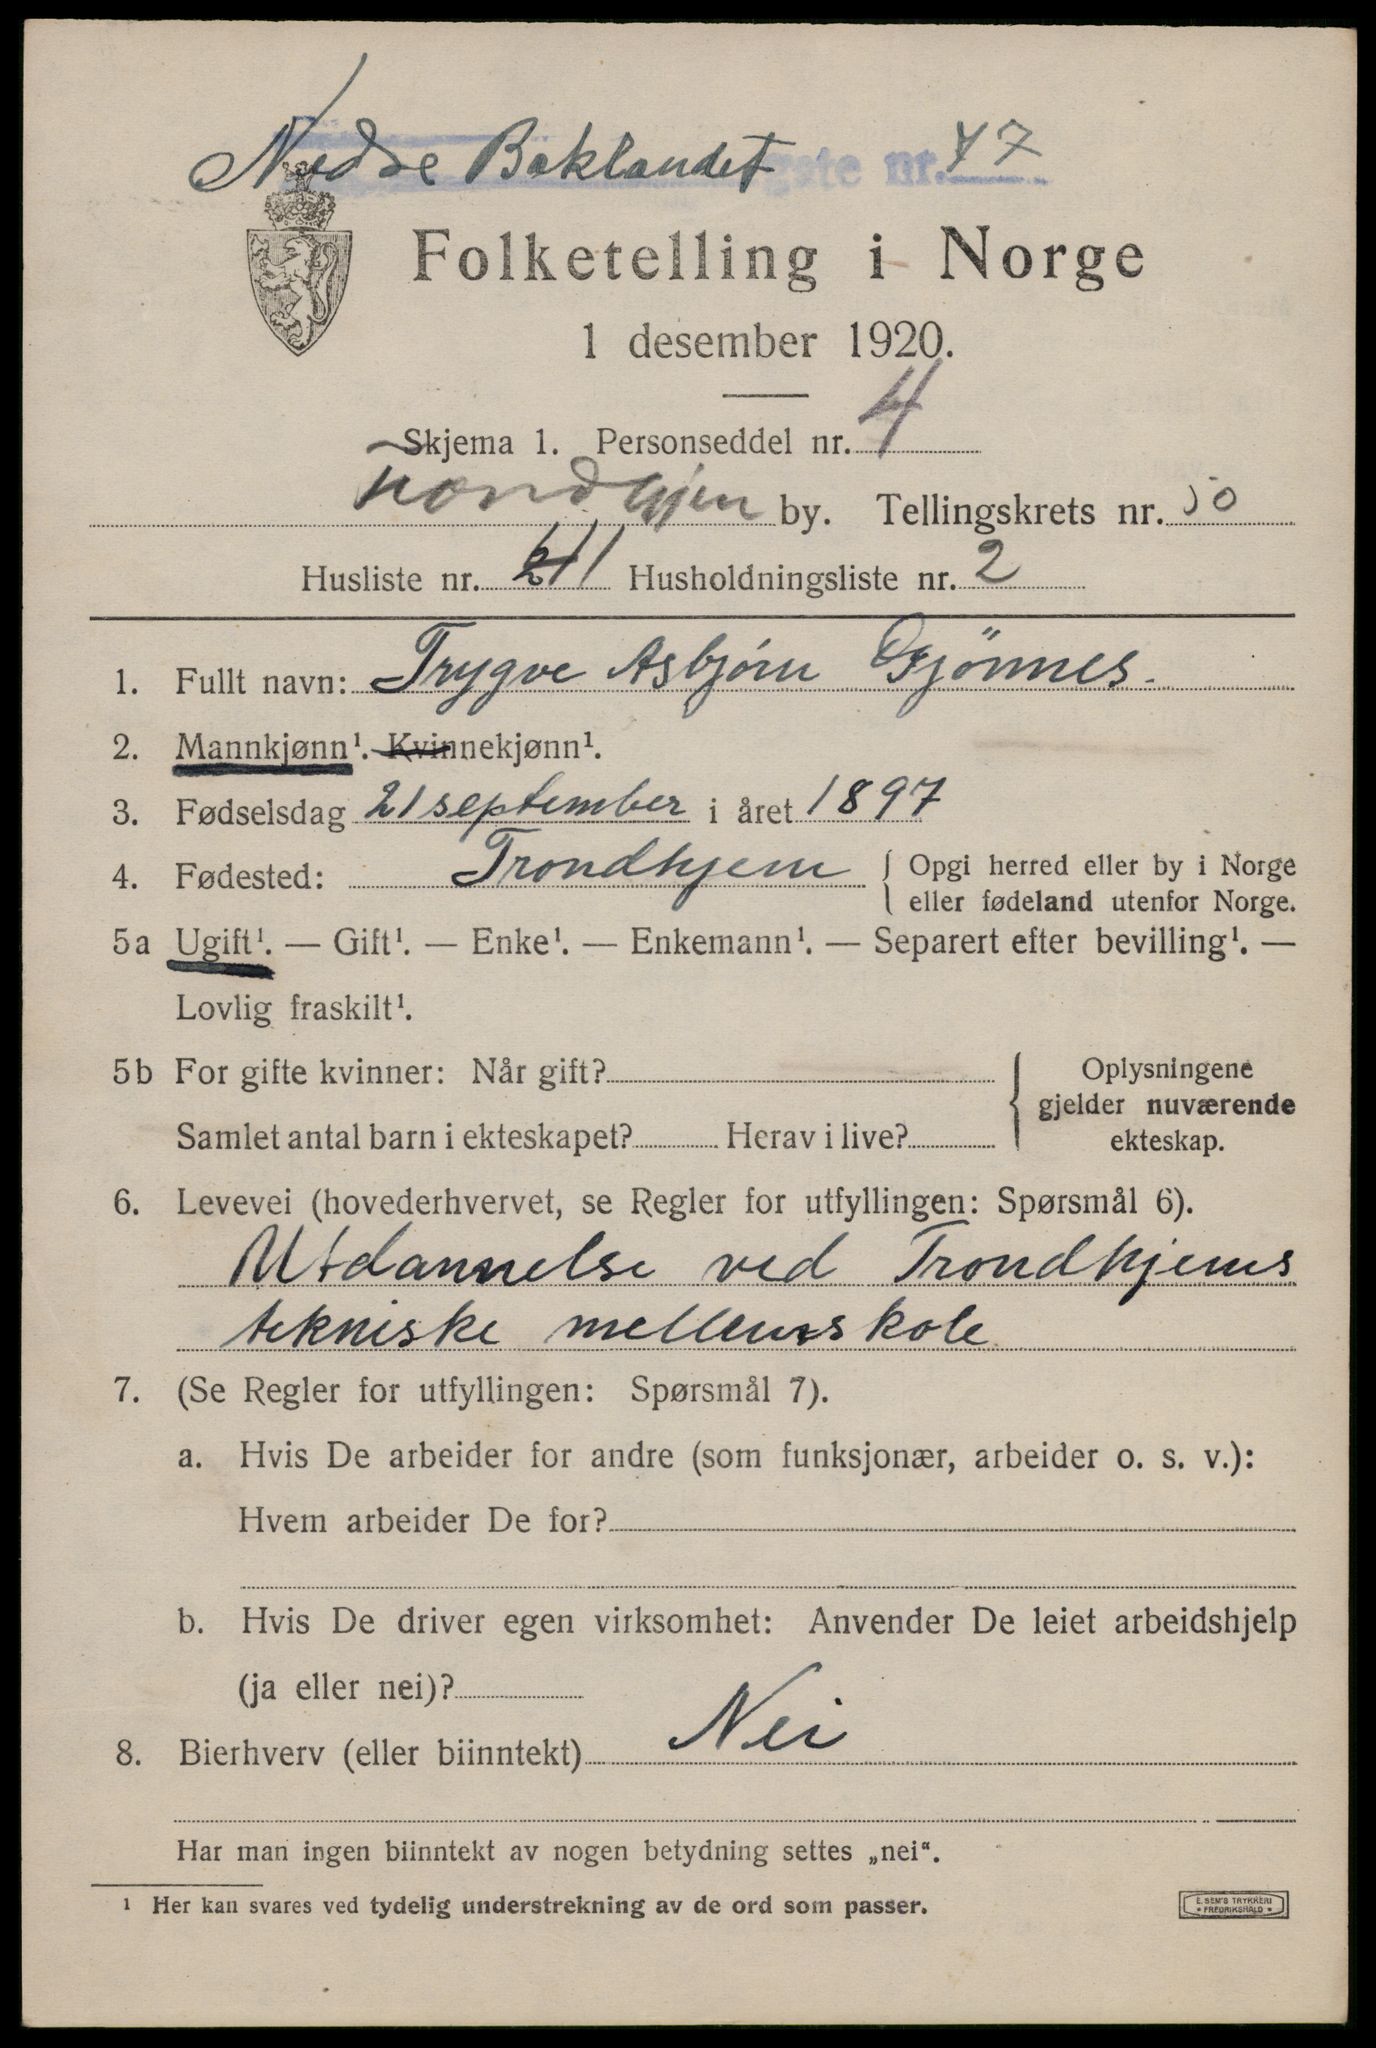 Nedre Baklandet gste nr. 47
Folketelling i Norge
1 desember 1920.
Skjema 1. Personseddel nr. 4
Trondhjem by. Tellingskrets nr. 50
Husliste nr. 11 Husholdningsliste nr. 2
1. Fullt navn: Trygve Asbjørn Gjönnes.
2. Mannkjønn¹. Kvinnekjønn¹.
3. Fødselsdag 21 september i året 1897
4. Fødested: Trondhjem { Opgi herred eller by i Norge
eller fødeland utenfor Norge.
5a Ugift¹. — Gift¹. — Enke¹. — Enkemann¹. — Separert efter bevilling¹. —
Lovlig fraskilt¹.
5b For gifte kvinner: Når gift? { Oplysningene
gjelder nuværende
Samlet antal barn i ekteskapet? Herav i live? ekteskap.
6. Levevei (hovederhvervet, se Regler for utfyllingen: Spørsmål 6).
Utdannelse ved Trondhjems
tekniske mellemskole
7. (Se Regler for utfyllingen: Spørsmål 7).
a. Hvis De arbeider for andre (som funksjonær, arbeider o. s. v.):
Hvem arbeider De for?
b. Hvis De driver egen virksomhet: Anvender De leiet arbeidshjelp
(ja eller nei)?
8. Bierhverv (eller biinntekt) Nei
Har man ingen biinntekt av nogen betydning settes „nei“.
¹ Her kan svares ved tydelig understrekning av de ord som passer.
E. SEM'S TRYKKERI
* FREDRIKSHALD *